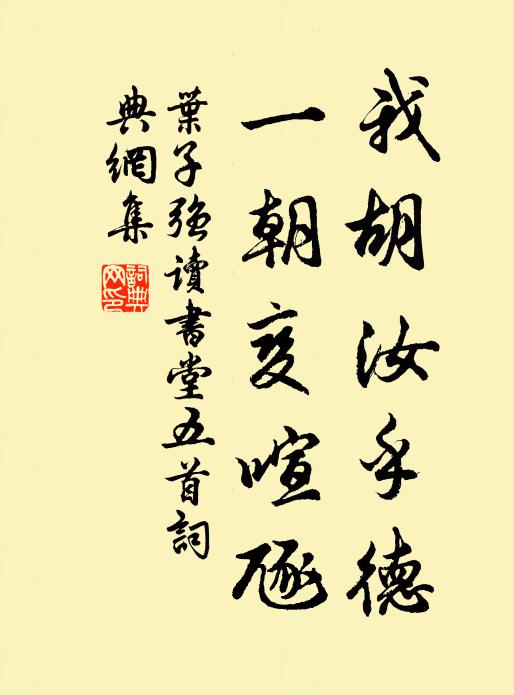 我胡汝乎德
一朝变喧豗
葉子强讀書堂五首詞
典網集
詞典网印